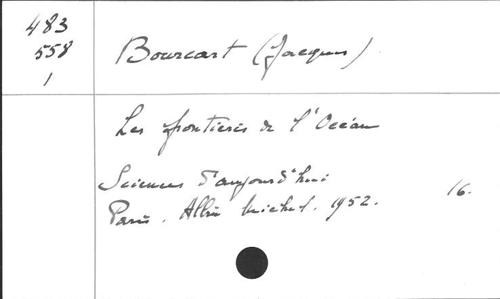 483
558
1
Bourcart (Jacques)
Les frontières de l'Océan
Sciences d'aujourd'hui
Paris. Albin Michel. 1952. 16.